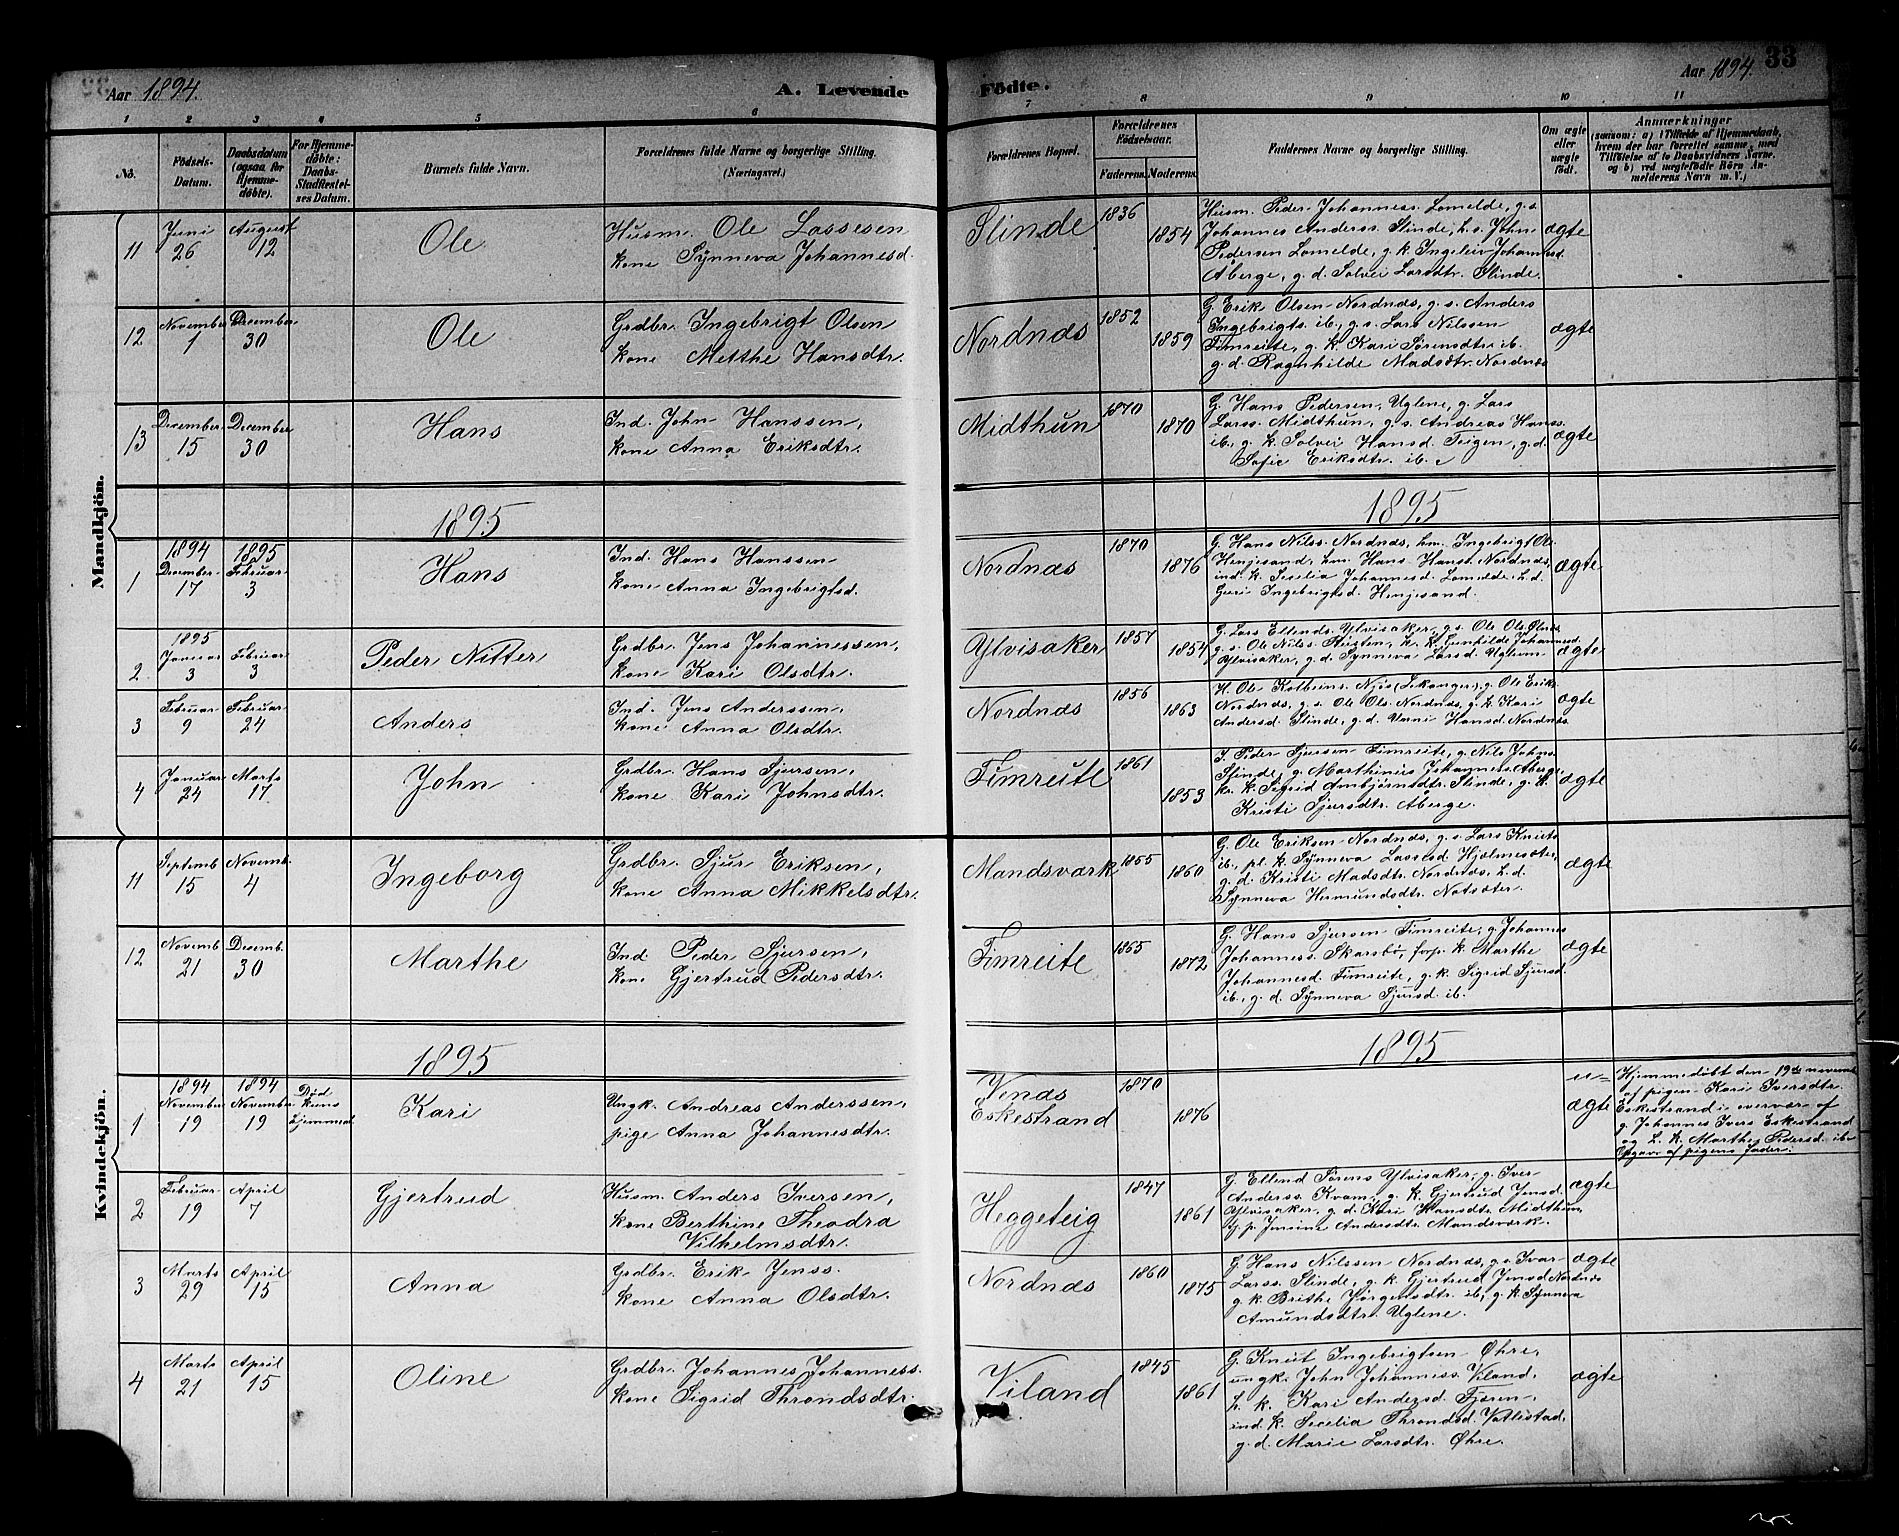 Aar 1894.
A. Levende
Fødte.
Aar 1894.
33
1 2 3 4 5 6 7 8 9 10 11
No.
Fødsels-Datum.
Daabsdatum (ogsaa for Hjemmedøbte).
For Hjemmedøbte: Daabs-Stadfæstelses Datum.
Barnets fulde Navn.
Forældrenes fulde Navne og borgerlige Stilling. (Næringsvei.)
Forældrenes Bopæl.
Forældrenes Fødselsaar.
Faderens. Moderens.
Faddernes Navne og borgerlige Stilling.
Om ægte eller uægte født.
Anmærkninger
(saasom: a) i Tilfælde af Hjemmedaab, hvem der har forrettet samme, med Tilføielse af to Daabsvidners Navne, og b) ved uægtefødte Børn Anmelderens Navn m. V.)
Mandkjön.
11 Juni 26 August 12 Ole
Husm. Ole Lassesen
kone Synneva Johannesd.
Slinde 1836 1854
Husm. Peder Johanness. Lomelde, g.s.
Johannes Anderss. Slinde, h.s. John
Pedersen Lomelde, g.k. Ingeleiv Johannesd.
Åberge, g.d. Solvei Larsdtr. Slinde
ægte
12 November 1 December 30 Ole
Grdbr. Ingebrigt Olsen
kone Metthe Hansdtr.
Nordnæs 1852 1859
G. Erik Olsen Nordnæs, g.s. Anders
Ingebrigts. ib., g.s. Lars Nilssen
Fimreite, g.k. Kari Sørensdtr. ib.
g.d. Ragnhilde Madsdtr. Nordnæs
ægte
13 December 15 December 30 Hans
Ind. John Hanssen,
kone Anna Eriksdtr.
Midthun 1870 1870
G. Hans Pedersen, Uglene, g. Lars
Larss. Midthun, g.s. Andreas Hanss.
ib., g.k. Solvei Hansd. Teigen, g.d.
Sofie Eriksdtr. ib.
ægte
1895
1895
1 1894 December 17 1895 Februar 3 Hans
Ind. Hans Hanssen
kone Anna Ingebrigtsd.
Nordnæs 1870 1876
G. Hans Nilss. Nordnæs, hm. Ingebrigt Ols.
Henjesand, hm. Hans Hanss. Nordnæs,
ind. k. Secelia Johannesd. Lomelde, h.d.
Guri Ingebrigtsd. Henjesand.
ægte
2 1895 Januar 3 Februar 3 Peder Nitter
Grdbr. Jens Johannessen,
kone Kari Olsdtr.
Ylvisaker 1857 1854
G. Lars Ellends. Ylvisaker, g.s. Ole Ols.
g.s. Ole Nilss. h.k. Gunhilde Johannesd.
Ylvisaker, g.d. Synneva Larsd. Uglum
ægte
3 Februar 9 Februar 24 Anders
Ind. Jens Anderssen,
kone Anna Olsdtr.
Nordnæs 1856 1863
H. Ole Kolbeins. Njøs (Lekanger), g. Ole Eriks.
Nordnæs, g.s. Ole Ols. Nordnæs, g.k. Kari
Andersd. Slinde, g.d. Unni Hansd. Nordnæs
ægte
4 Januar 24 Marts 17 John
Grdbr. Hans Sjursen,
kone Kari Johnsdtr.
Fimreite 1861 1853
I. Peder Sjursen Fimreite, g. Nils Johns.
Slinde, g. Marthinus Johannes. Aberge
kr. k. Sigrid Arnbjørnsdtr. Slinde, g.k.
Kristi Sjursdtr. Åberge.
ægte
Kvindekjön.
11 Septemb. 15 Novemb. 4 Ingeborg
Grdbr. Sjur Eriksen,
kone Anna Mikkelsdtr.
Mandsværk 1855 1860
G. Ole Eriksen Nordnæs, g.s. Lars Knuts.
ib., pl. k. Synneva Lassesd. Hjelmesæter,
g.d. Kristi Madsdtr. Nordnæs, h.d.
Synneva Hermundsdtr. Notsæter.
ægte
12 Novemb. 21 Decemb. 30 Marthe
Ind. Peder Sjursen,
kone Gjertrud Pedersdtr.
Fimreite 1865 1872
G. Hans Sjursen Fimreite, g. Johannes
Johanness. Skarsbø, k. Marthe
Johannesd. Fimreite, g.k. Sigrid Sjursd.
ib., g.d. Synneva Sjursd. ib.
ægte
1895
1895
1 1894 November 19 1894 November 19 Død kuns hjemmed. Kari
Ungk. Andreas Anderssen,
pige Anna Johannesdtr.
Venæs
Eskestrand 1870 1876
u=
ægte
Hjemmedøbt den 19de novemb.
af pigen Kari Iversdtr.
Eskestrand i overvær af
g. Johannes Ivers. Eskestrand
og L. k. Marthe Pedersd. ib.
Opgave af pigens fader.
2 Februar 19 April 7 Gjertrud
Husm. Anders Iversen,
kone Berthine Theodra
Vilhelmsdtr.
Heggeteig 1847 1861
G. Ellend Sørens. Ylvisaker, g. Iver
Anderss. Kvam, g.k. Gjertrud Jensd.
Ylvisaker, g.d. Kari Hansdtr. Midthun,
g.p. Jensine Andersdtr. Mandsværk.
ægte
3 Marts 29 April 15 Anna
Grdbr. Erik Jenss.
kone Anna Olsdtr.
Nordnæs 1860 1875
G. Hans Nilssen Nordnæs, g.s. Ivar
Larss. Slinde, g.k. Gjertrud Jensd. Nordnæs
g.k. Brithe Jørgensdtr. ib., g.k. Synneva
Amundsdtr. Uglene.
ægte
4 Marts 21 April 15 Oline
Grdbr. Johannes Johanness.
kone Sigrid Throndsdtr.
Viland 1845 1861
G. Knut Ingebrigtsen Øhre,
ungk. John Johanness. Viland,
h.k. Kari Andersd. Fjeren,
ind. k. Secelia Throndsd. Vatlestad,
g.d. Marie Larsdtr. Øhre.
ægte